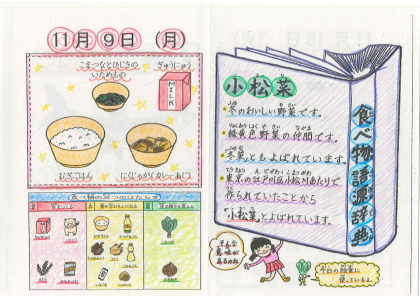 11月9日（月）
こまつなとひじきの
いためもの
ぎゅうにゅう
MILK
むぎごはん
にくじゃが(カレーあじ)
小松菜
冬のおいしい野菜です。
緑黄色野菜の仲間です。
"冬菜"ともよばれています。
東京の江戸川区小松川あたりで
作られていたことから
"小松菜"とよばれています。
食べ物語源辞典
そんな
意味が
あるのね
今日の給食に
使っているよ。